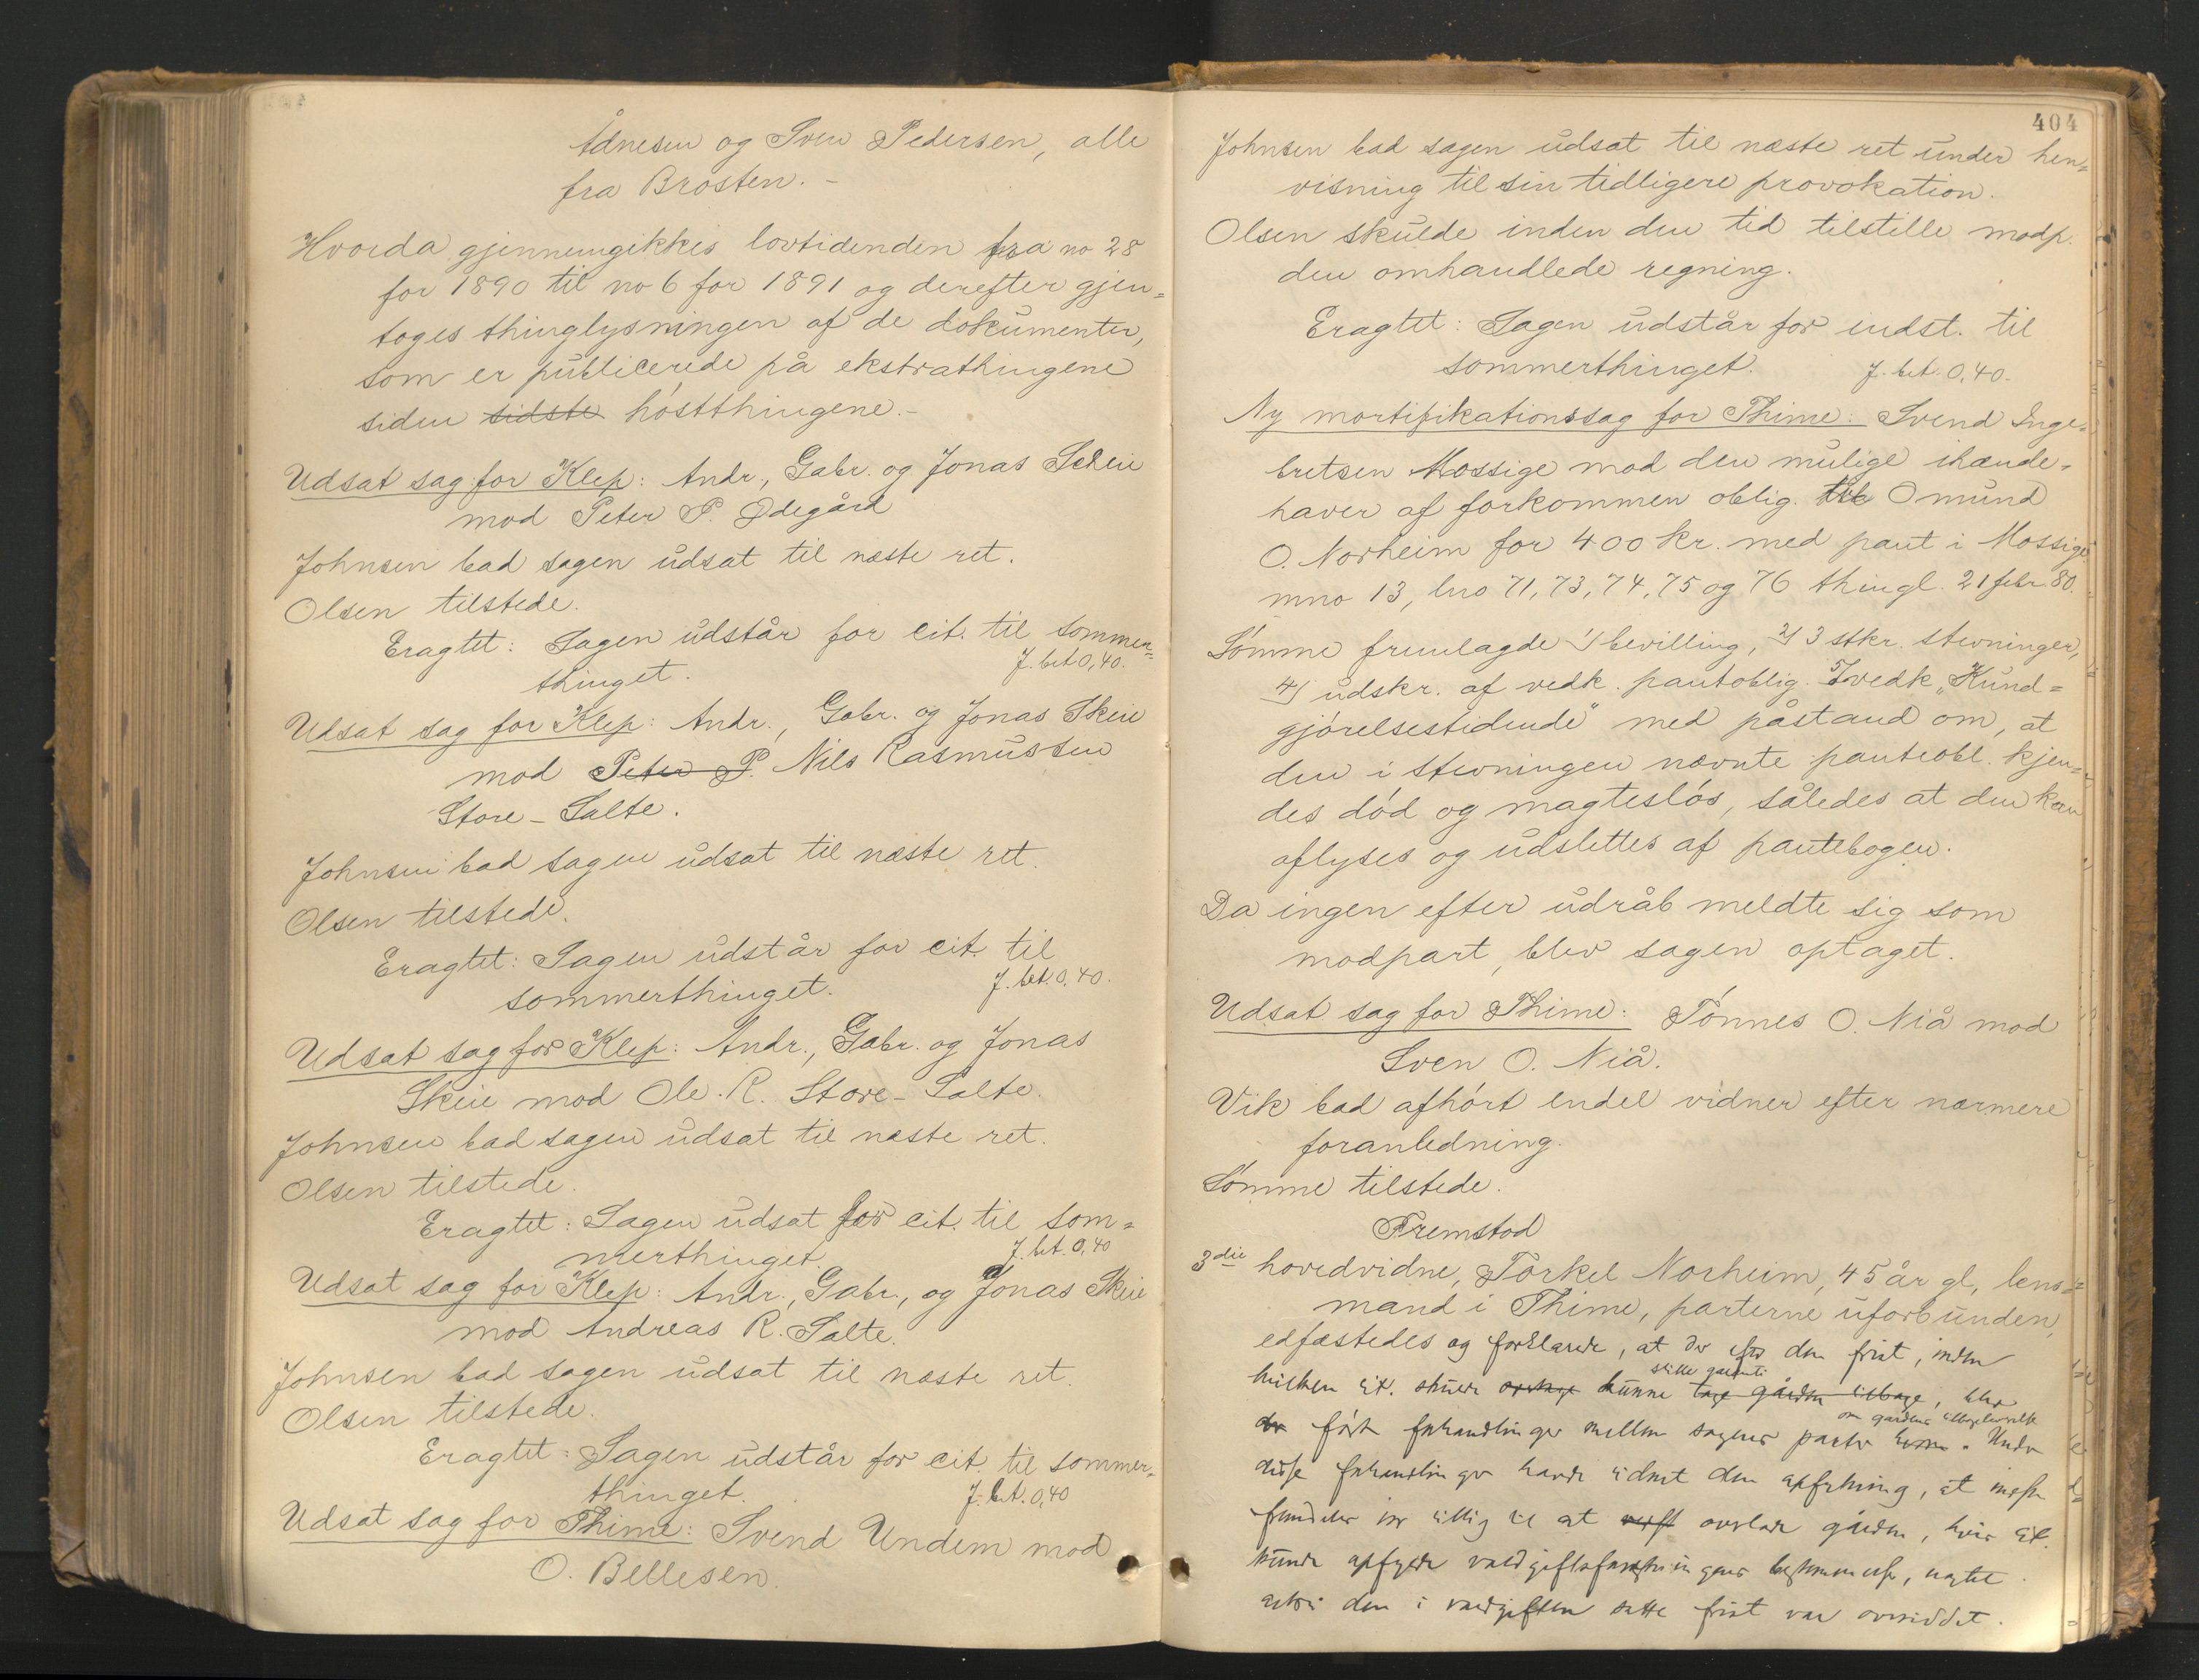 Ådnesen og Sven Pedersen, alle
fra Brosten. -
Hvorda gjennemgikkes lovtidenden fra no 28
for 1890 til no 6 for 1891 og derefter gjen-
toges thinglysningen af de dokumenter,
som er publicerede på ekstrathingene
siden sidste høstthingene. -
Udsat sag for Klep: Andr., Gabr. og Jonas Skeie
mod Peter P. Ødegård
Johnsen bad sagen udsat til næste ret.
Olsen tilstede.
Eragtet: Sagen udstår for cit. til sommer-
thinget.
J. bet. 0,40.
Udsat sag for Klep: Andr., Gabr. og Jonas Skeie
mod Peter P. Nils Rasmussen
Store-Salte.
Johnsen bad sagen udsat til næste ret.
Olsen tilstede.
Eragtet: Sagen udstår for cit. til
sommerthinget.
J. bet. 0,40.
Udsat sag for Klep: Andr., Gabr. og Jonas
Skeie mod Ole R. Store-Salte.
Johnsen bad sagen udsat til næste ret.
Olsen tilstede.
Eragtet: Sagen udsat for cit. til som-
merthinget.
J. bet. 0,40
Udsat sag for Klep: Andr., Gabr., og Jonas Skeie
mod Andreas R. Salte.
Johnsen bad sagen udsat til næste ret.
Olsen tilstede.
Eragtet: Sagen udstår for cit. til sommer-
thinget.
J. bet. 0,40
Udsat sag for Thime: Svend Undem mod
O. Bellesen.
404
Johnsen bad sagen udsat til næste ret under hen-
visning til sin tidligere provokation.
Olsen skulde inden den tid tilstille modp.
den omhandlede regning.
Eragtet: Sagen udstår for indst. til
sommerthinget.
J. bet. 0,40.
Ny mortifikationssag for Thime: Svend Inge-
bretsen Mossige mod den mulige ihænde-
haver af forkommen oblig. til Omund
O. Norheim for 400 kr. med pant i Mossige
mno 13, lno 71, 73, 74, 75 og 76 thingl. 21 febr. 80.
Sømme fremlagde 1) bevilling, 2) 3 stkr. stevninger,
4) udskr. af vedk. pantoblig. 5) vedk. "Kund-
gjørelsestidende" med påstand om, at
den i stevningen nævnte panteobl. kjen-
des død og magtesløs, således at den kan
aflyses og udslettes af pantebogen.
Da ingen efter udråb meldte sig som
modpart, blev sagen optaget.
Udsat sag for Thime: Tønnes O. Niå mod
Sven O. Niå.
Vik bad afhørt endel vidner efter nærmere
foranledning.
Sømme tilstede.
Fremstod
3die hovedvidne, Torkel Norheim, 45 år gl, lens-
mand i Thime, parterne uforbunden,
edfæstedes og forklarede, at der efter den frist, inden
hvilken cit. skulde kunne tage gården tilbage, blev
stille garanti
der ført forhandlinger mellem sagens parter Under
om gårdens
disse forhandlinger havde vidnet den opfatning, at
var villig til at overlade gården, hvis cit.
kunde opfylde bestemmelse, uagtet
den i voldgiften satte frist var overskriddet.